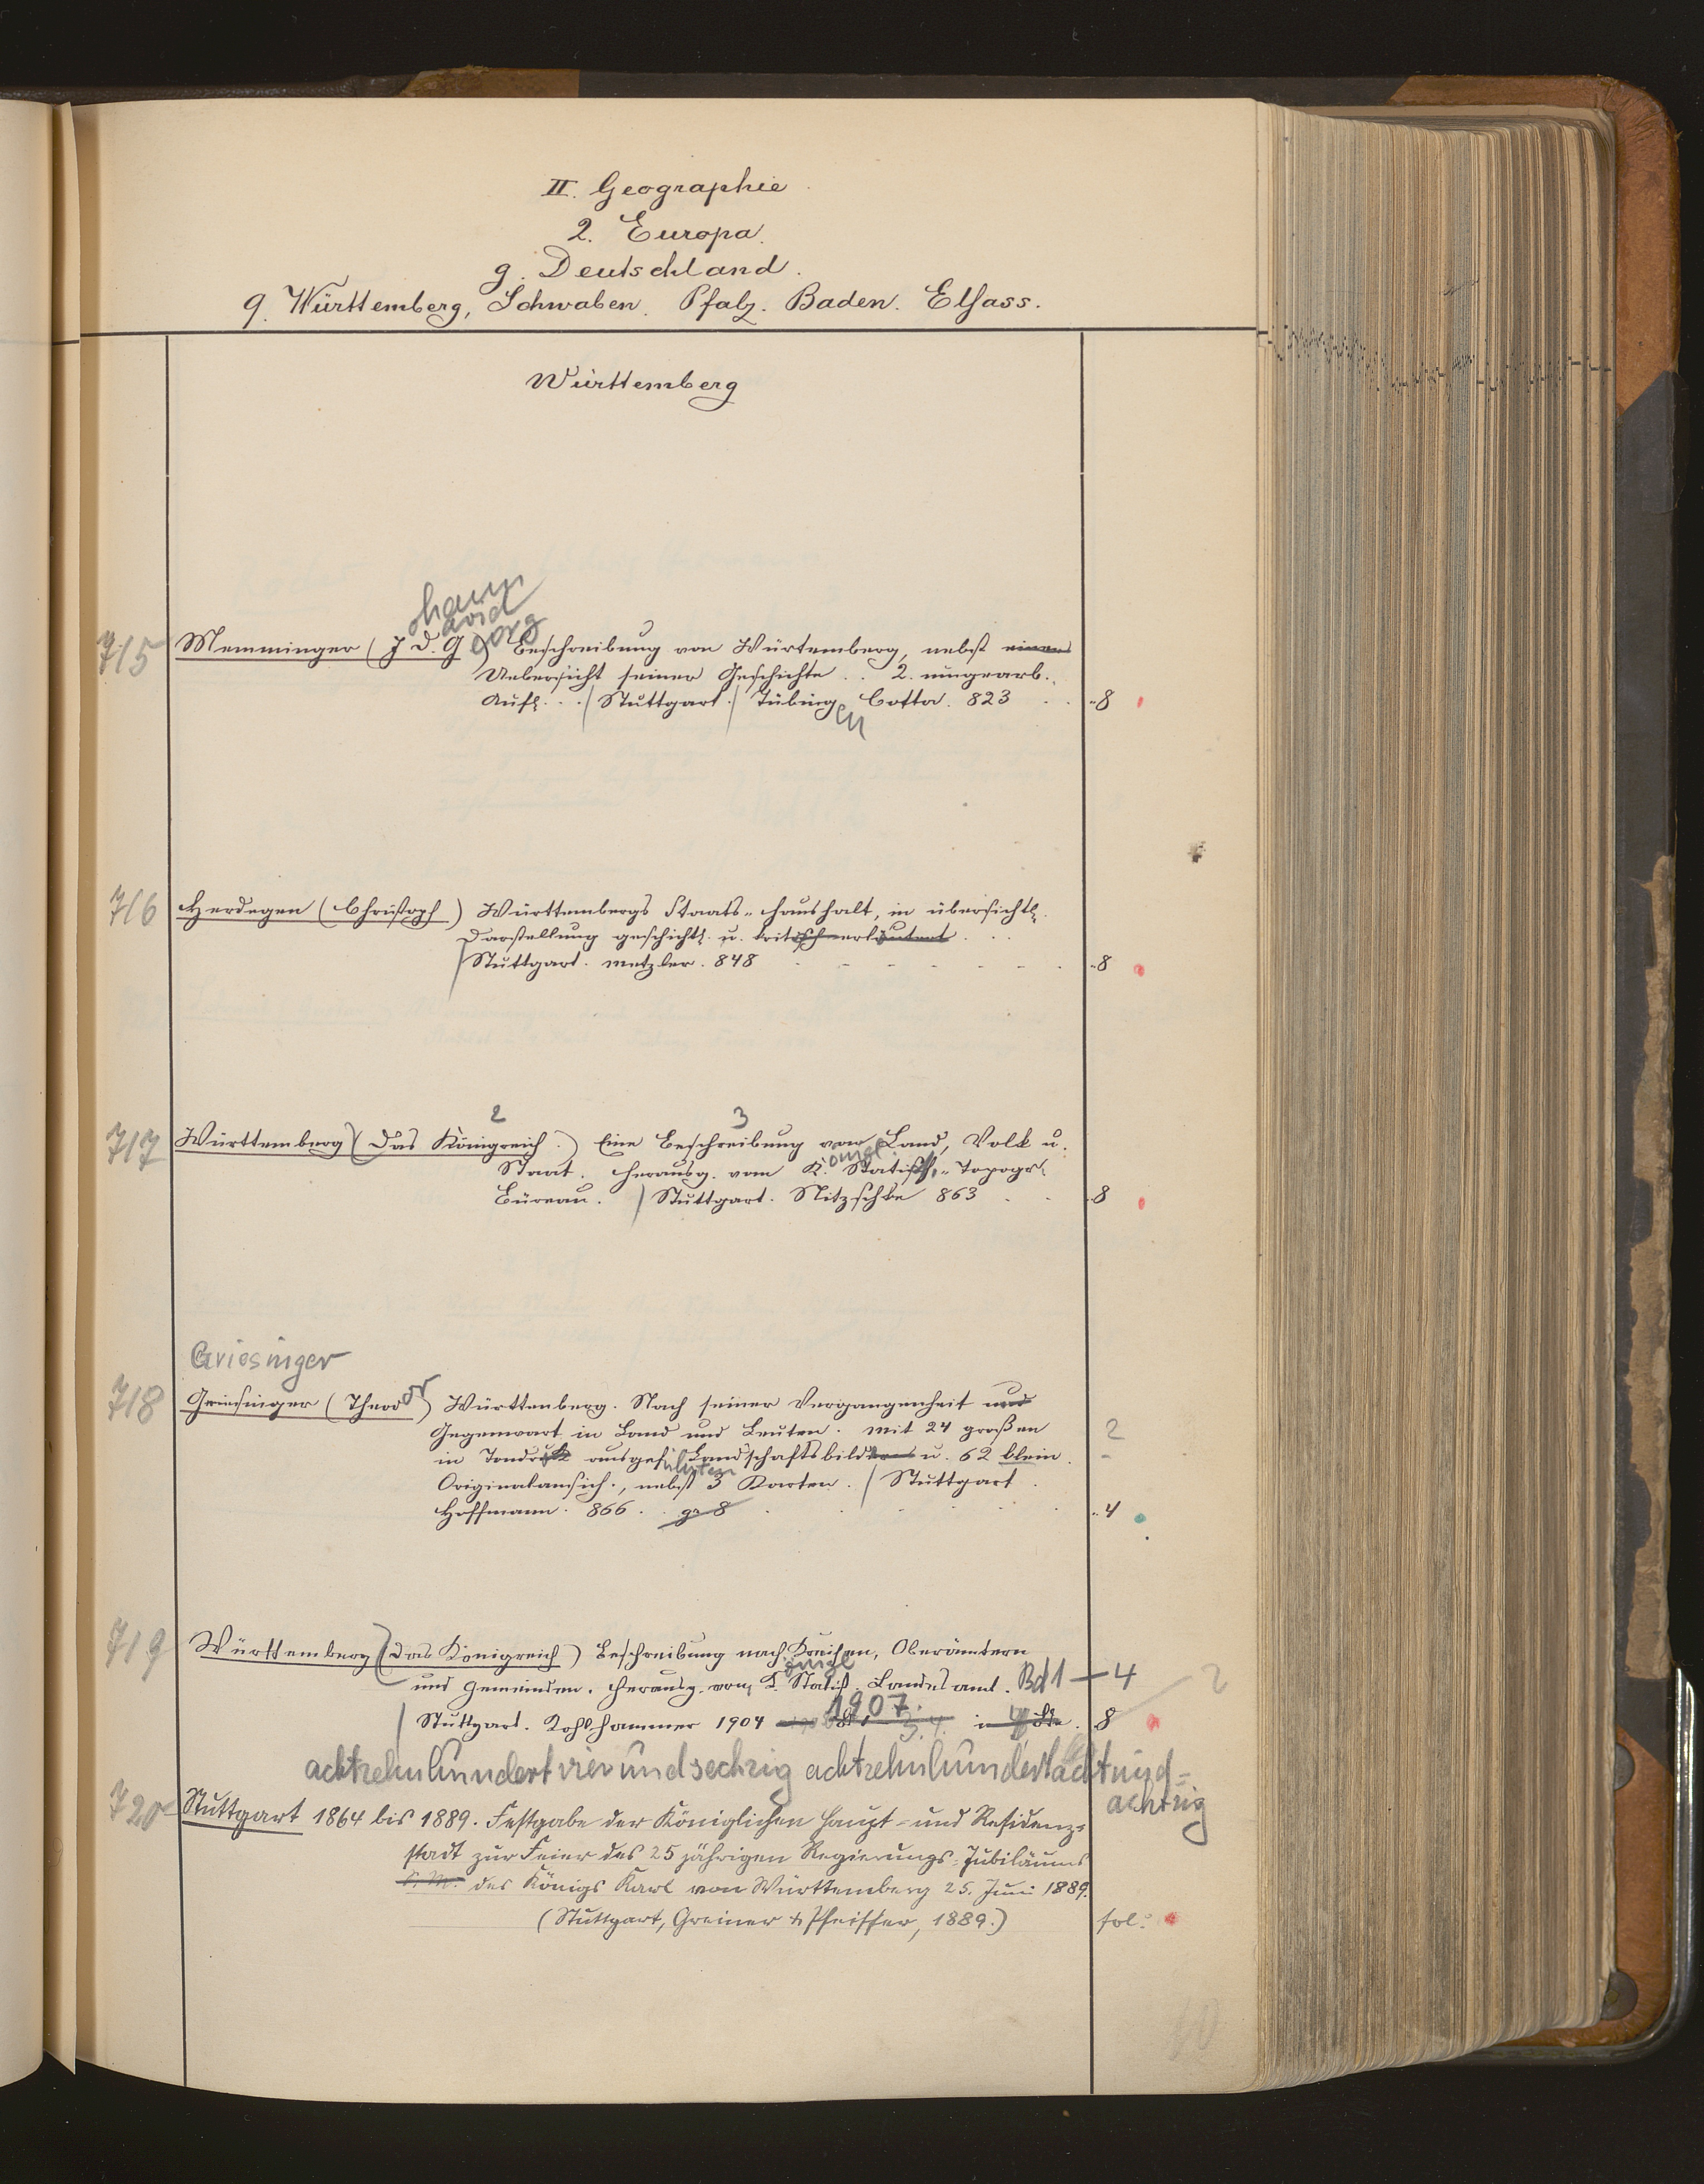 II. Geographie
2. Europa.
g. Deutschland.
q. Württemberg, Schwaben. Pfalz. Baden. Elsass.
Württemberg
ohann
avid
eorg
715 Memminger (J. D. G.) Beschreibung von Würtemberg, nebst einer
Uebersicht seiner Geschichte . . 2. umgearb.
Aufl. . . / Stuttgart. / Tübing Cotta. 823 . . -8
en
716 Herdegen (Christoph) Württembergs Staats-Haushalt, in übersichtl.
Darstellung geschichtl. u. kritisch erläutert . . .
/ Stuttgart. Metzler. 848 -8
2 3
717 Württemberg (Das Königreich.) Eine Beschreibung von Land, Volk u.
önigl.
Staat. Herausg. vom K. Statist.-Topogr.
Büreau. / Stuttgart. Nitzschke 863 . . -8
Griesinger
718 Griesinger (Theodor) Württemberg. Nach seiner Vergangenheit und
Gegenwart in Land und Leuten. Mit 24 großen 2
in Tondruck ausgef. Landschaftsbildern u. 62 klein. -
ührten
Originalansich., nebst 3 Karten. / Stuttgart.
Hoffmann. 866. gr 8 -4
719 Württemberg (das Königreich) Beschreibung nach Kreisen, Oberämtern
önigl
und Gemeinden. Herausg. vom K. Statist. Landesamt. Bd 1 – 4 2
1907.
/ Stuttgart. Kohlhammer 1904 in 4 Bde. 8
achtzehnhundertvierundsechzig achtzehnhundertachtund=
achtzig
720 Stuttgart 1864 bis 1889. Festgabe der Königlichen Haupt- und Residenz-
stadt zur Feier des 25 jährigen Regierungs-Jubiläums
S. M. des Königs Karl von Württemberg 25. Juni 1889.
(Stuttgart, Greiner & Pfeiffer, 1889.) fol.
10